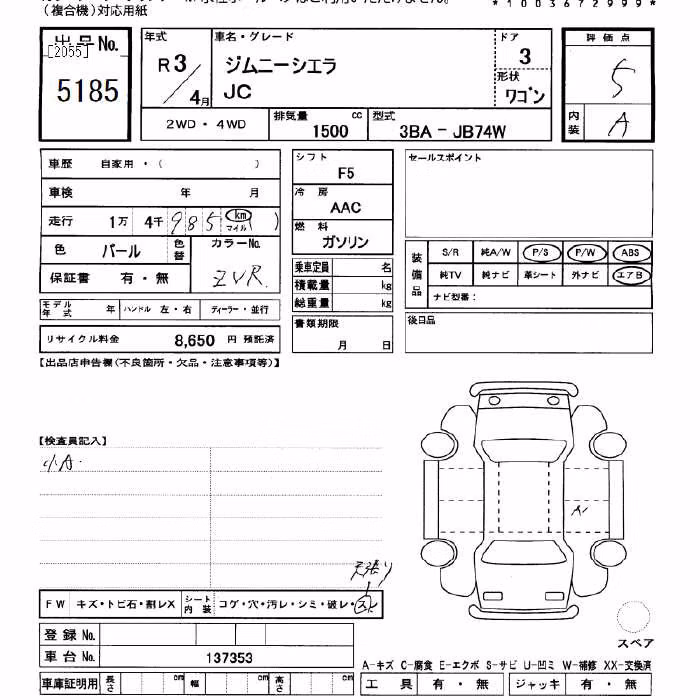 (複合機)対応用紙
*10036729999*
出品No.
[2055]
5185
年式
R3/4月
車名・グレード
ジムニーシエラ
JC
ドア
3
形状
ワゴン
評価点
5
内装
A
2WD・4WD
排気量
1500 cc
型式
3BA - JB74W
車歴 自家用・( )
車検 年 月
走行 1万 4千 985 (km マイル)
色 パール
色替
カラーNo.
ZVR.
保証書 有・無
モデル年式 年
ハンドル 左・右
ディーラー・並行
リサイクル料金 8,650 円 預託済
シフト
F5
冷房
AAC
燃料
ガソリン
乗車定員 名
積載量 kg
総重量 kg
書類期限
月 日
セールスポイント
装備品
S/R 純A/W P/S P/W ABS
純TV 純ナビ 革シート 外ナビ エアB
ナビ型番:
後日品
【出品店申告欄(不良箇所・欠品・注意事項等)】
【検査員記入】
小A.
A1
天張り
FW キズ・トビ石・割レX
シート内装
コゲ・穴・汚レ・シミ・破レ・スレ
登録No.
車台No. 137353
車庫証明用 長さ cm 幅 cm 高さ cm
スペア
A-キズ C-腐食 E-エクボ S-サビ U-凹ミ W-補修 XX-交換済
工具 有・無 ジャッキ 有・無